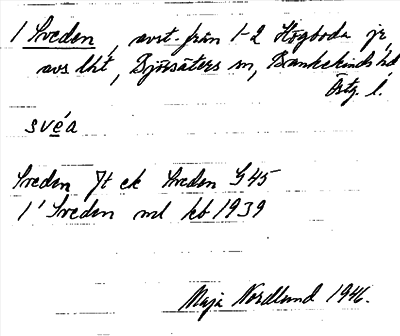 1 Sveden, avst. från 1-2 Högboda jr,
avs lht, Björsäters sn, Bankekinds hd
Östg. l.
svéa
Sveden Jt ek Sveden G45
1' Sveden ml kb 1939
Maja Nordlund 1946.